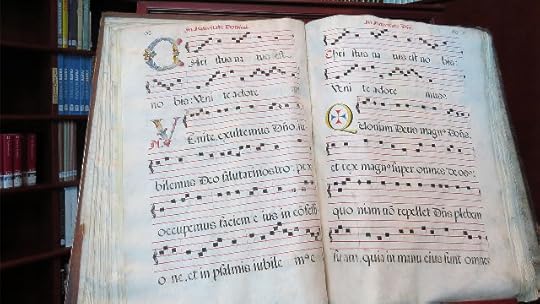 In Natiuitate Domini
CHri stus na tus est
no bis: Veni te adore mus.
VEnite exultemus Dño, iu
bilemus Deo salutari nostro: præ
occupemus faciem e ius in cõfessi
o ne, et in psalmis iubile mꝰ e
In Natiuitate Dñi.
Chri stus na tus est no bis:
Veni te adore mus.
QVoniam Deus magnꝰ Dñs,
et rex magnꝰ super omnes deos:
quo niam nõ repellet Dñs plebem
su am, quia in manu eius sunt omnes